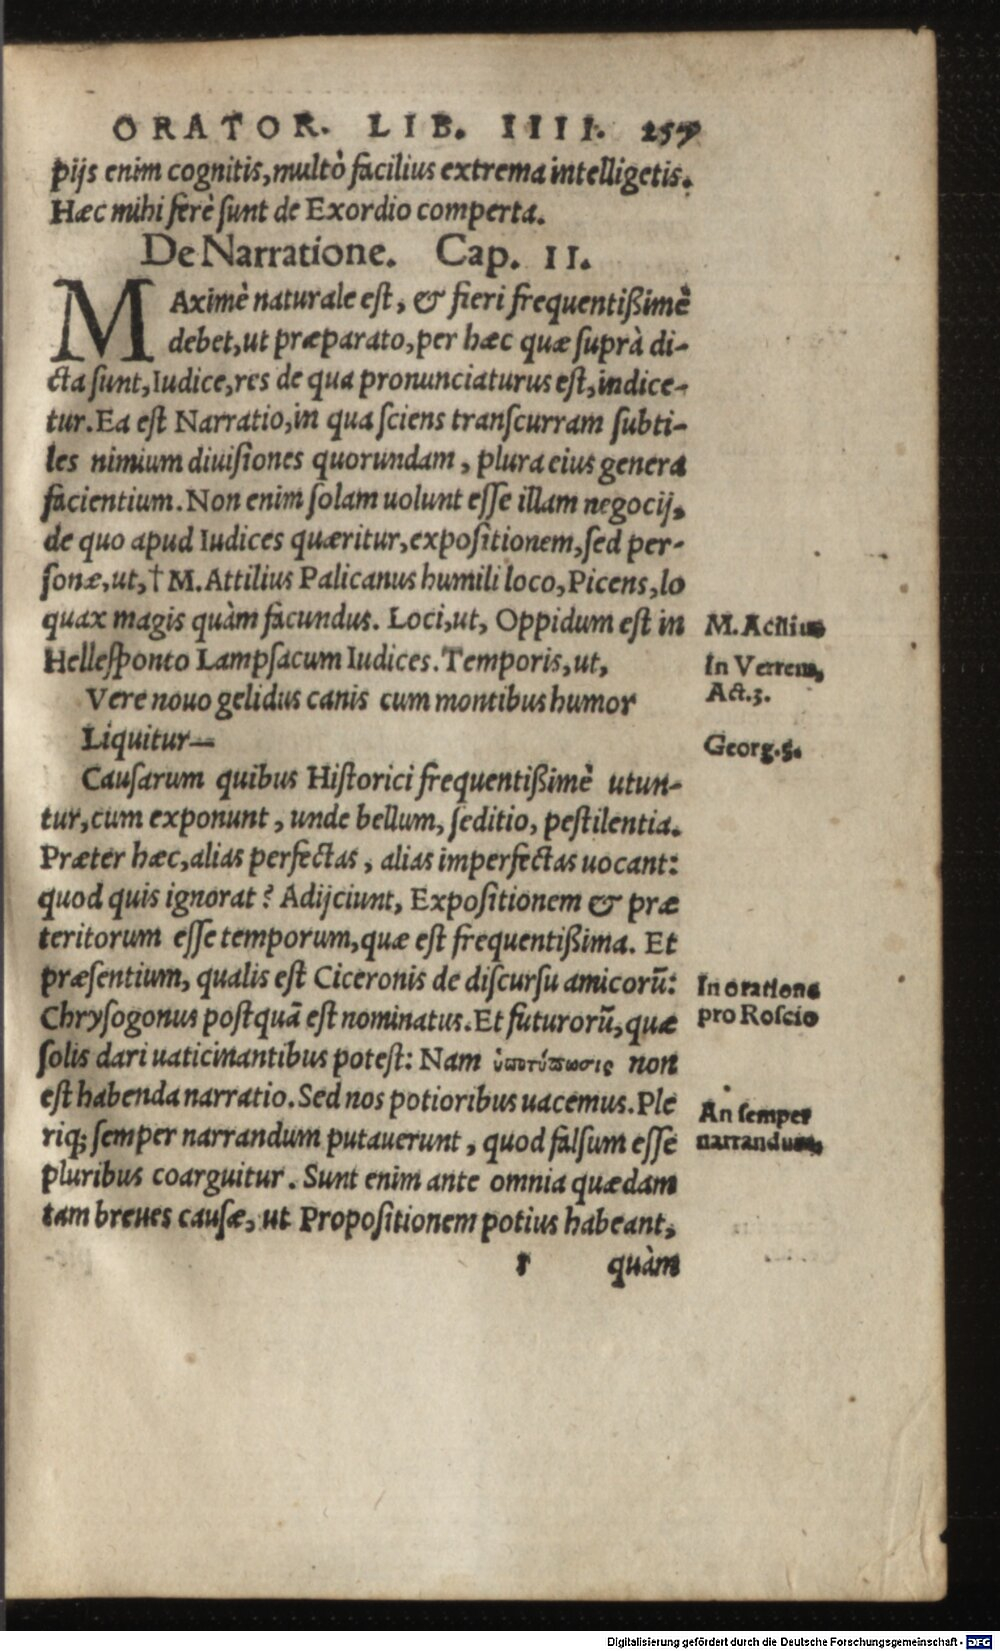 ORATOR. LIB. IIII. 257
pijs enim cognitis, multò facilius extrema intelligetis.
Hæc mihi ferè sunt de Exordio comperta.
De Narratione. Cap. II.
MAximè naturale est, & fieri frequentißimè
debet, ut præparato, per hæc quæ suprà di-
cta sunt, Iudice, res de qua pronunciaturus est, indice-
tur. Ea est Narratio, in qua sciens transcurram subti-
les nimium diuisiones quorundam, plura eius genera
facientium. Non enim solam uolunt esse illam negocij,
de quo apud Iudices quæritur, expositionem, sed per-
sonæ, ut, † M. Attilius Palicanus humili loco, Picens, lo
quax magis quàm facundus. Loci, ut, Oppidum est in
Hellesponto Lampsacum Iudices. Temporis, ut,
Vere nouo gelidus canis cum montibus humor
Liquitur—
Causarum quibus Historici frequentißimè utun-
tur, cum exponunt, unde bellum, seditio, pestilentia.
Præter hæc, alias perfectas, alias imperfectas uocant:
quod quis ignorat? Adijciunt, Expositionem & præ
teritorum esse temporum, quæ est frequentißima. Et
præsentium, qualis est Ciceronis de discursu amicorũ:
Chrysogonus postquã est nominatus. Et futurorũ, quæ
solis dari uaticinantibus potest: Nam ὑποτύπωσις non
est habenda narratio. Sed nos potioribus uacemus. Ple
riq; semper narrandum putauerunt, quod falsum esse
pluribus coarguitur. Sunt enim ante omnia quædam
tam breues causæ, ut Propositionem potius habeant,
r quàm
M. Acilius
In Verrem,
Act.3.
Georg.
In oratione
pro Roscio
An semper
narrandum,
Digitalisierung gefördert durch die Deutsche Forschungsgemeinschaft - DFG